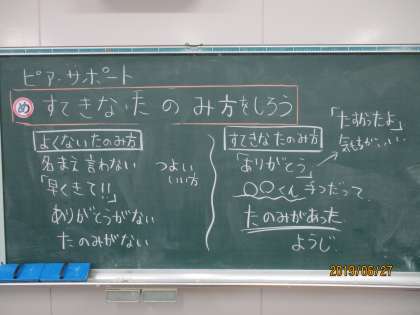 ピア・サポート
め すてきな、たのみ方をしろう
よくないたのみ方
名まえ言わない
「早くきて!!」
ありがとうがない
たのみがない
つよい
いい方
すてきなたのみ方
「ありがとう」
〇〇くん 手つだって
たのみがあった
ようじ
「たすかったよ」
気もちがいい
2019/06/27